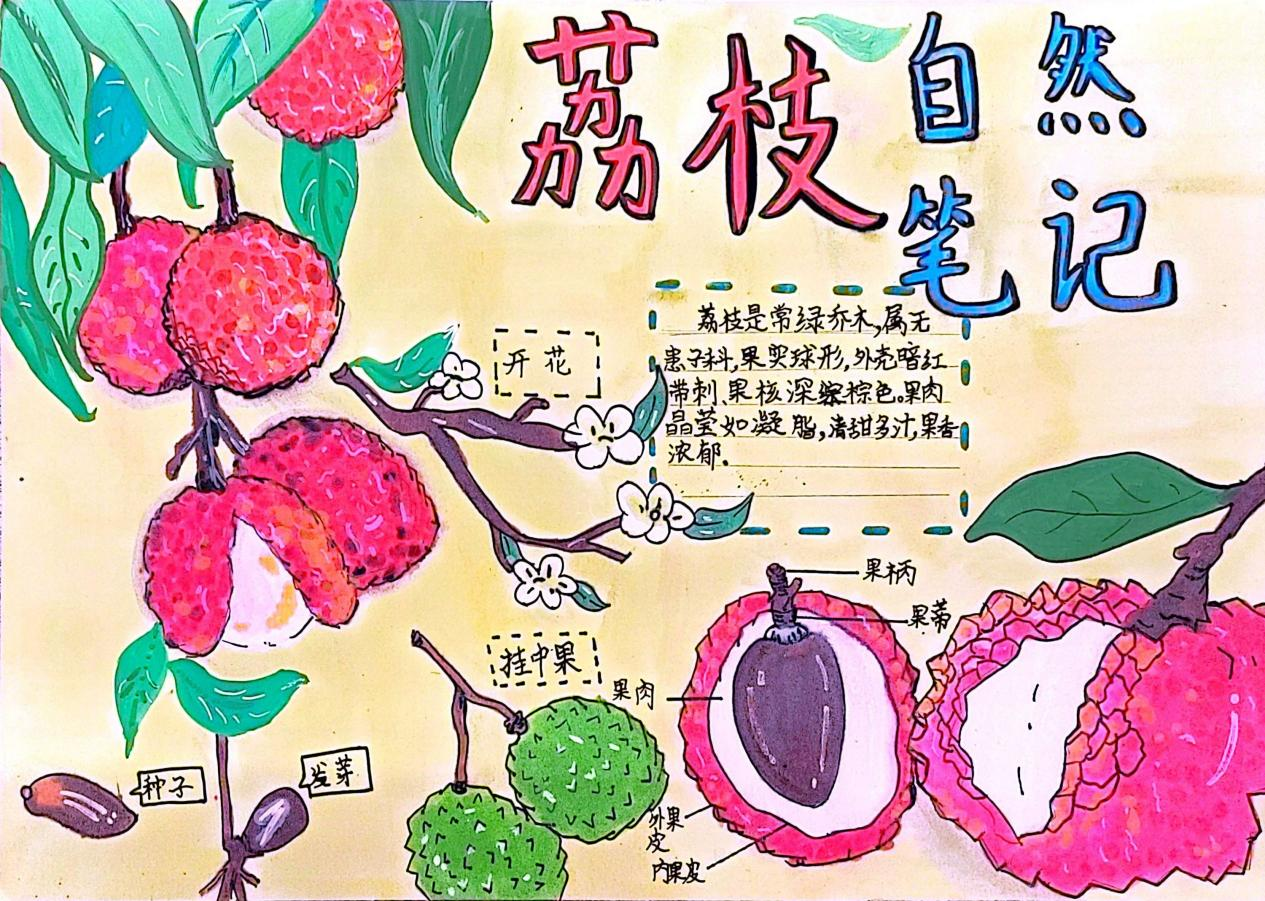 荔枝自然
笔记
荔枝是常绿乔木,属无
患子科,果实球形,外壳暗红
带刺、果核深棕色。果肉
晶莹如凝脂,清甜多汁,果香
浓郁.
开花
挂中果
果柄
果蒂
果肉
外果
皮
内果皮
种子
发芽